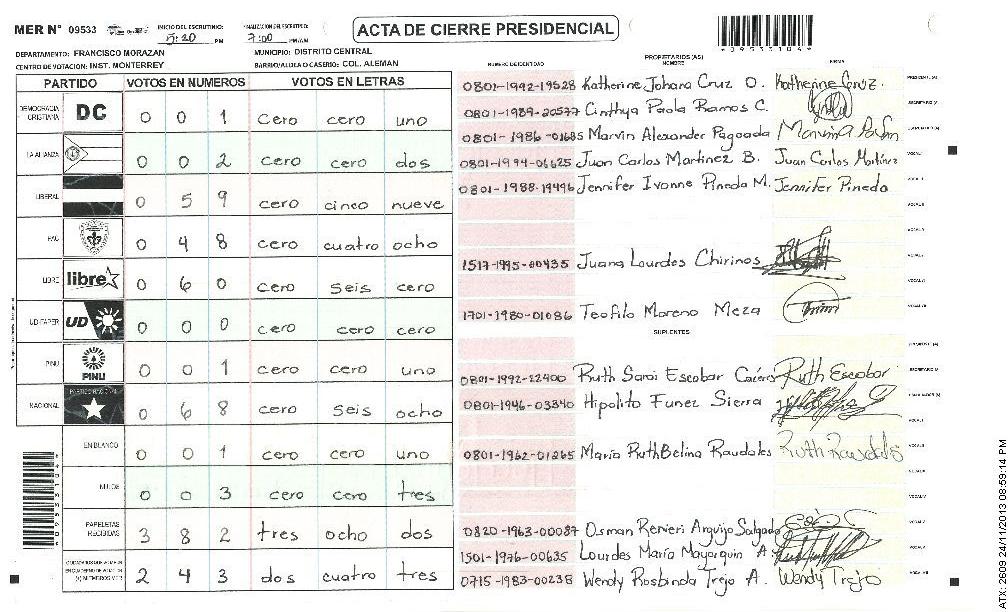 MER N° 09533
INICIO DEL ESCRUTINIO:
5:20 PM
FINALIZACION DEL ESCRUTINIO:
7:00 PM/AM
ACTA DE CIERRE PRESIDENCIAL
09533104
DEPARTAMENTO: FRANCISCO MORAZAN
MUNICIPIO: DISTRITO CENTRAL
CENTRO DE VOTACION: INST. MONTERREY
BARRIO/ALDEA O CASERIO: COL. ALEMAN
PARTIDO VOTOS EN NUMEROS VOTOS EN LETRAS
DEMOCRACIA CRISTIANA DC 0 0 1 cero cero uno
LA ALIANZA 0 0 2 cero cero dos
LIBERAL 0 5 9 cero cinco nueve
PAC 0 4 8 cero cuatro ocho
LIBRE libre 0 6 0 cero seis cero
UD-FAPER UD 0 0 0 cero cero cero
PINU PINU 0 0 1 cero cero uno
NACIONAL PARTIDO NACIONAL 0 6 8 cero seis ocho
EN BLANCO 0 0 1 cero cero uno
NULOS 0 0 3 cero cero tres
PAPELETAS RECIBIDAS 3 8 2 tres ocho dos
2 4 3 dos cuatro tres
NUMERO DE IDENTIDAD PROPIETARIOS (AS) NOMBRE FIRMA
0801-1992-19528 Katherine Johana Cruz O. Katherine Cruz. PRESIDENTE (A)
0801-1989-20577 Cinthya Paola Ramos C. SECRETARIO (A)
0801-1986-01685 Marvin Alexander Pagoada
0801-1994-06625 Juan Carlos Martinez B. Juan Carlos Martinez VOCAL I
0801-1988-19496 Jennifer Ivonne Pineda M. Jennifer Pineda VOCAL II
1517-1995-00435 Juana Lourdes Chirinos
1701-1980-01086 Teofilo Moreno Meza
SUPLENTES
0801-1992-22400 Ruth Sarai Escobar Cáceres Ruth Escobar SECRETARIO (A)
0801-1946-03340 Hipolito Funez Sierra
0801-1962-01265 Maria Ruth Belina Raudales Ruth Raudales
0820-1963-00087 Osman Renieri Arguijo Salgado
1501-1976-00635 Lourdes Maria Mayorquin A
0715-1983-00238 Wendy Rosbinda Trejo A. Wendy Trejo
ATX 2609 24/11/2013 08:59:14 PM